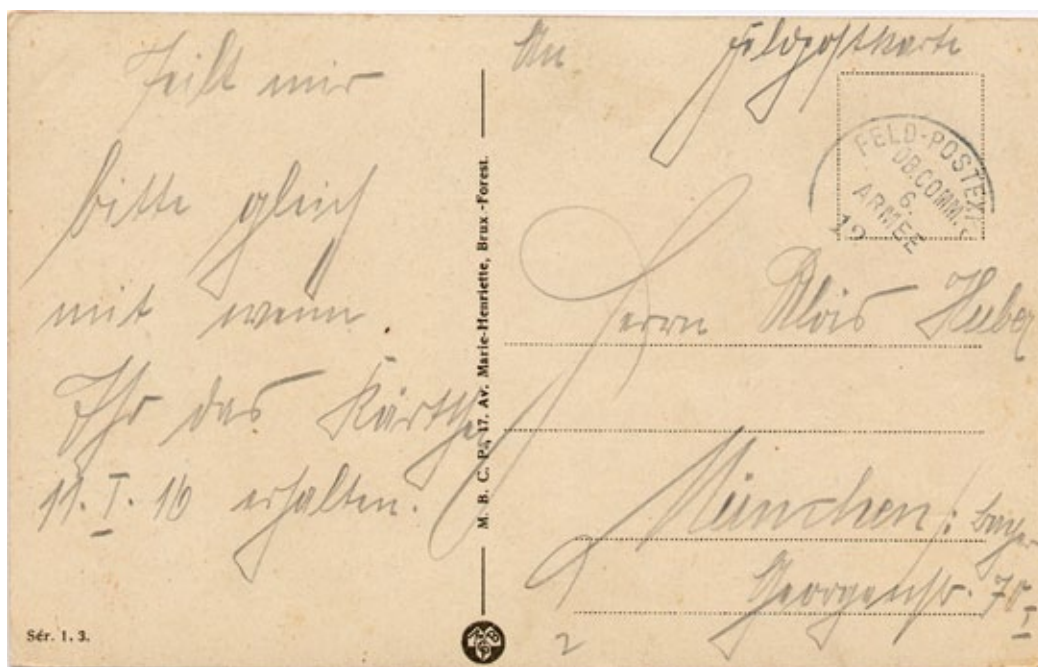 Teilt mir
bitte gleich
mit wenn
Ihr das Kärtchen
11. I. 16 erhalten.
Sér. 1. 3.
M. B. C. P., 17. Av. Marie-Henriette, Brux -Forest.
An Feldpostkarte
FELD-POSTEXP.
OB. COMM.
6.
ARMEE
12
Herrn Alois Huber
München /: Bayer
Georgenstr. 70 I
2